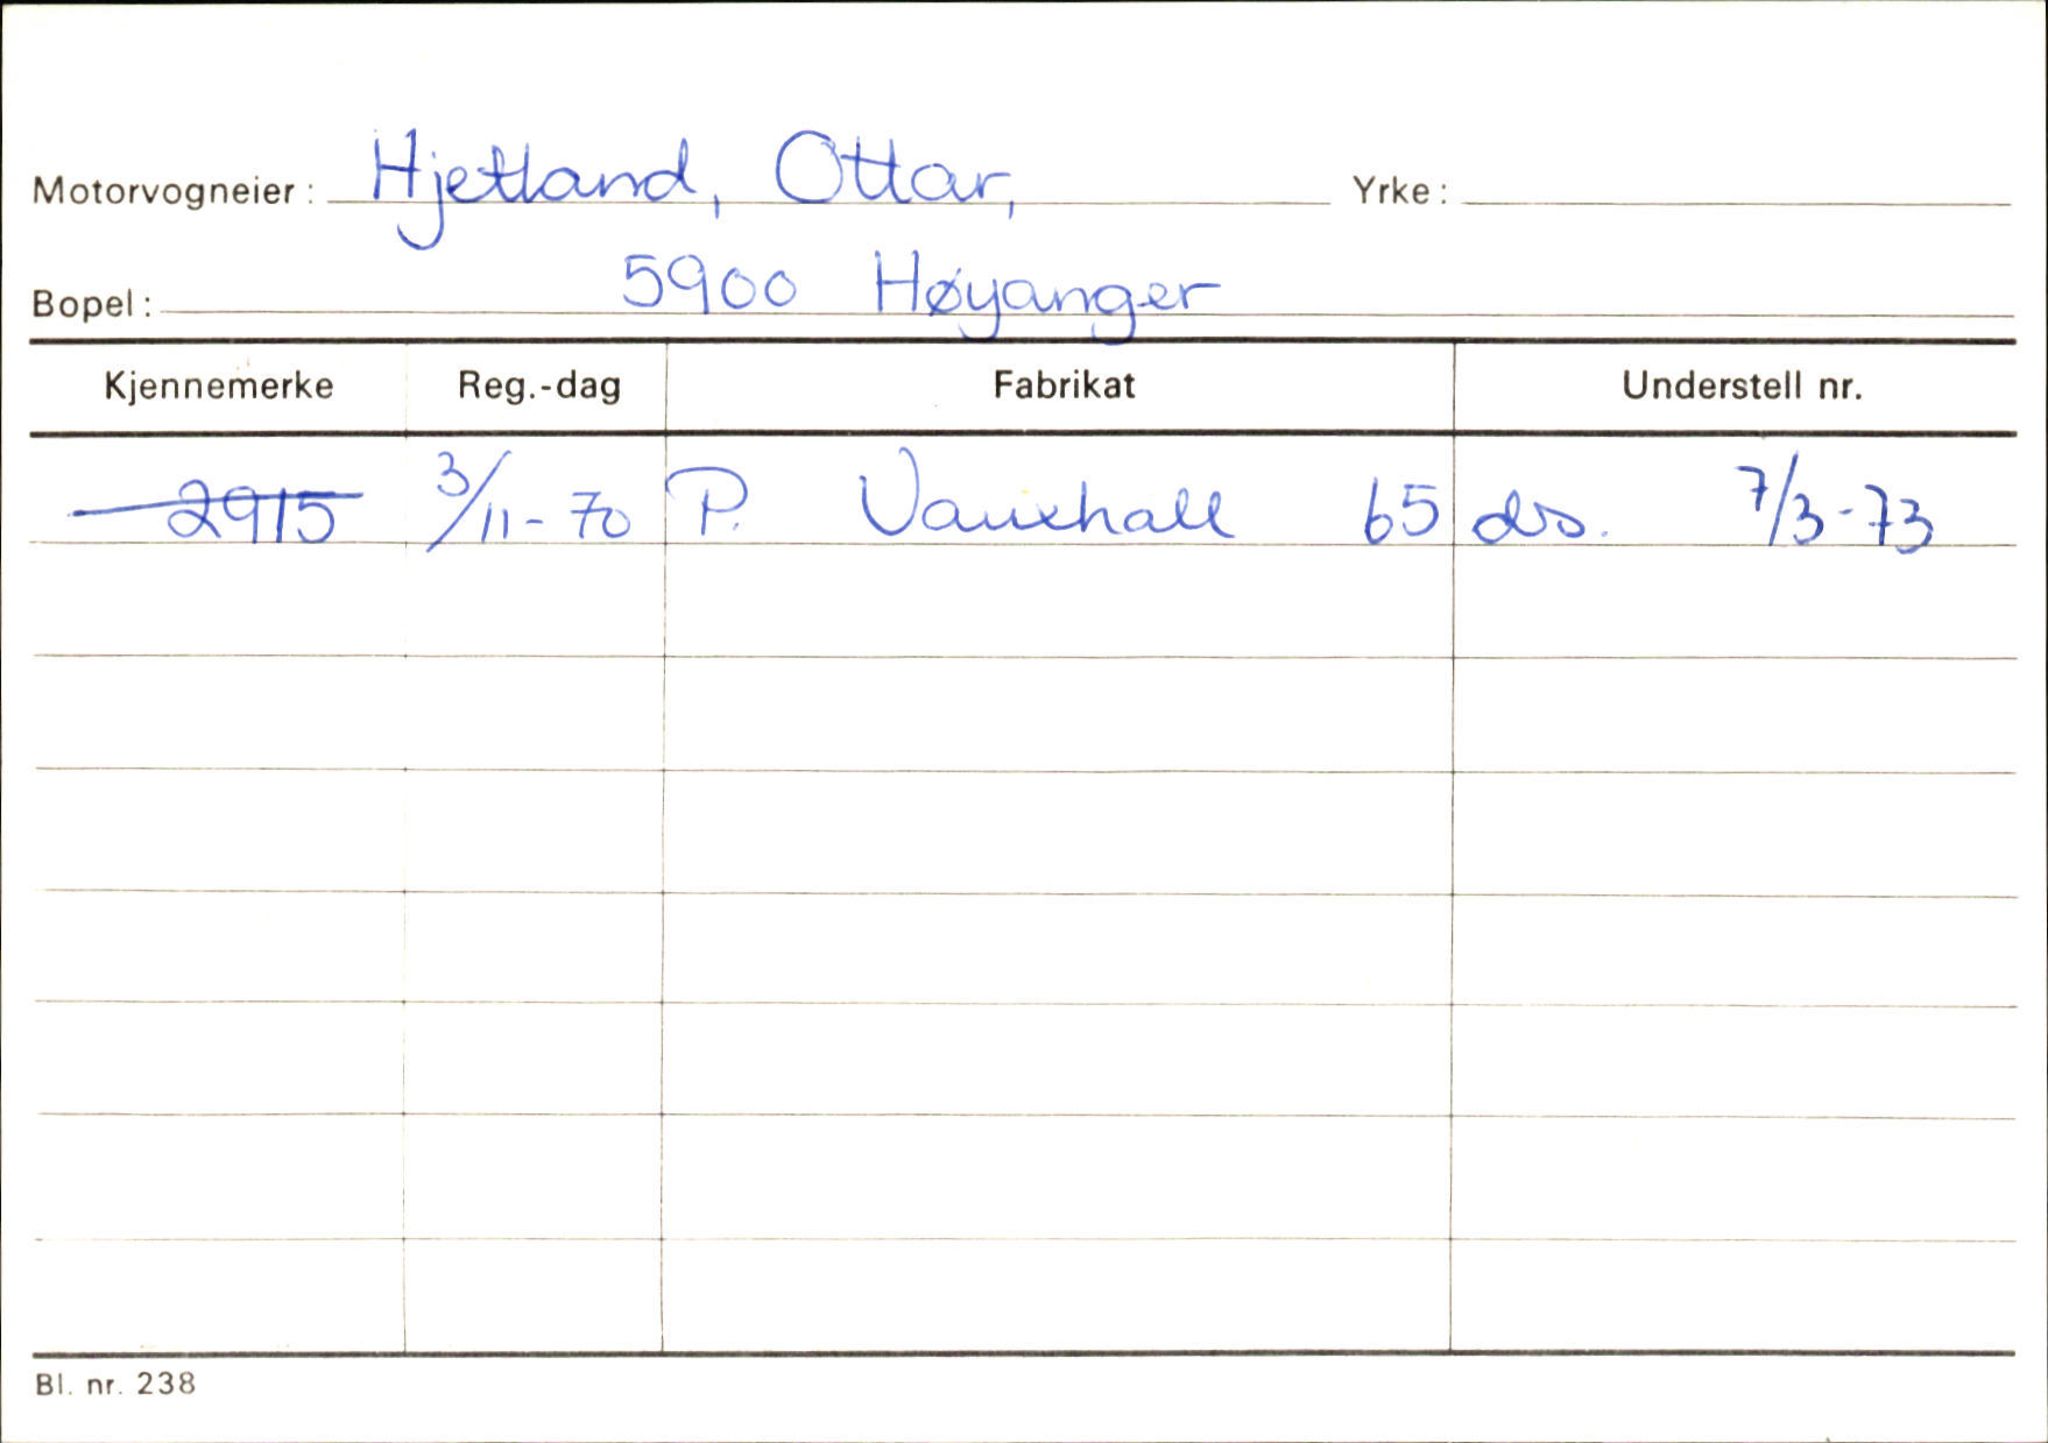 Motorvogneier: Hjetland, Ottar, Yrke:
Bopel: 5900 Høyanger
Kjennemerke Reg.-dag Fabrikat Understell nr.
2915 3/11-70 P. Vauxhall 65 ds. 7/3-73
Bl. nr. 238